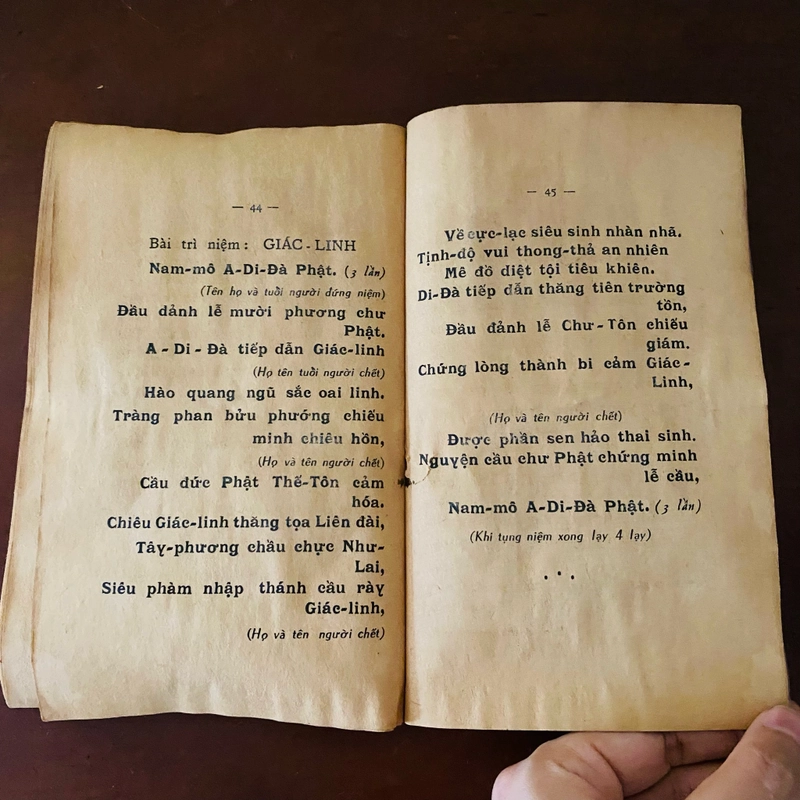 — 44 —
Bài trì niệm: GIÁC-LINH
Nam-mô A-Di-Đà Phật. (3 lần)
(Tên họ và tuổi người đứng niệm)
Đầu đảnh lễ mười phương chư
Phật.
A-Di-Đà tiếp dẫn Giác-linh
(Họ tên tuổi người chết)
Hào quang ngũ sắc oai linh.
Tràng phan bửu phướng chiếu
minh chiêu hồn,
(Họ và tên người chết)
Cầu đức Phật Thế-Tôn cảm
hóa.
Chiêu Giác-linh thăng tọa Liên đài,
Tây-phương chầu chực Như-
Lai,
Siêu phàm nhập thánh cầu rày
Giác-linh,
(Họ và tên người chết)
— 45 —
Về cực-lạc siêu sinh nhàn nhã.
Tịnh-độ vui thong-thả an nhiên
Mê đồ diệt tội tiêu khiên.
Di-Đà tiếp dẫn thăng tiên trường
tồn,
Đầu đảnh lễ Chư-Tôn chiếu
giám.
Chứng lòng thành bi cảm Giác-
Linh,
(Họ và tên người chết)
Được phần sen hảo thai sinh.
Nguyện cầu chư Phật chứng minh
lễ cầu,
Nam-mô A-Di-Đà Phật. (3 lần)
(Khi tụng niệm xong lạy 4 lạy)
• • •